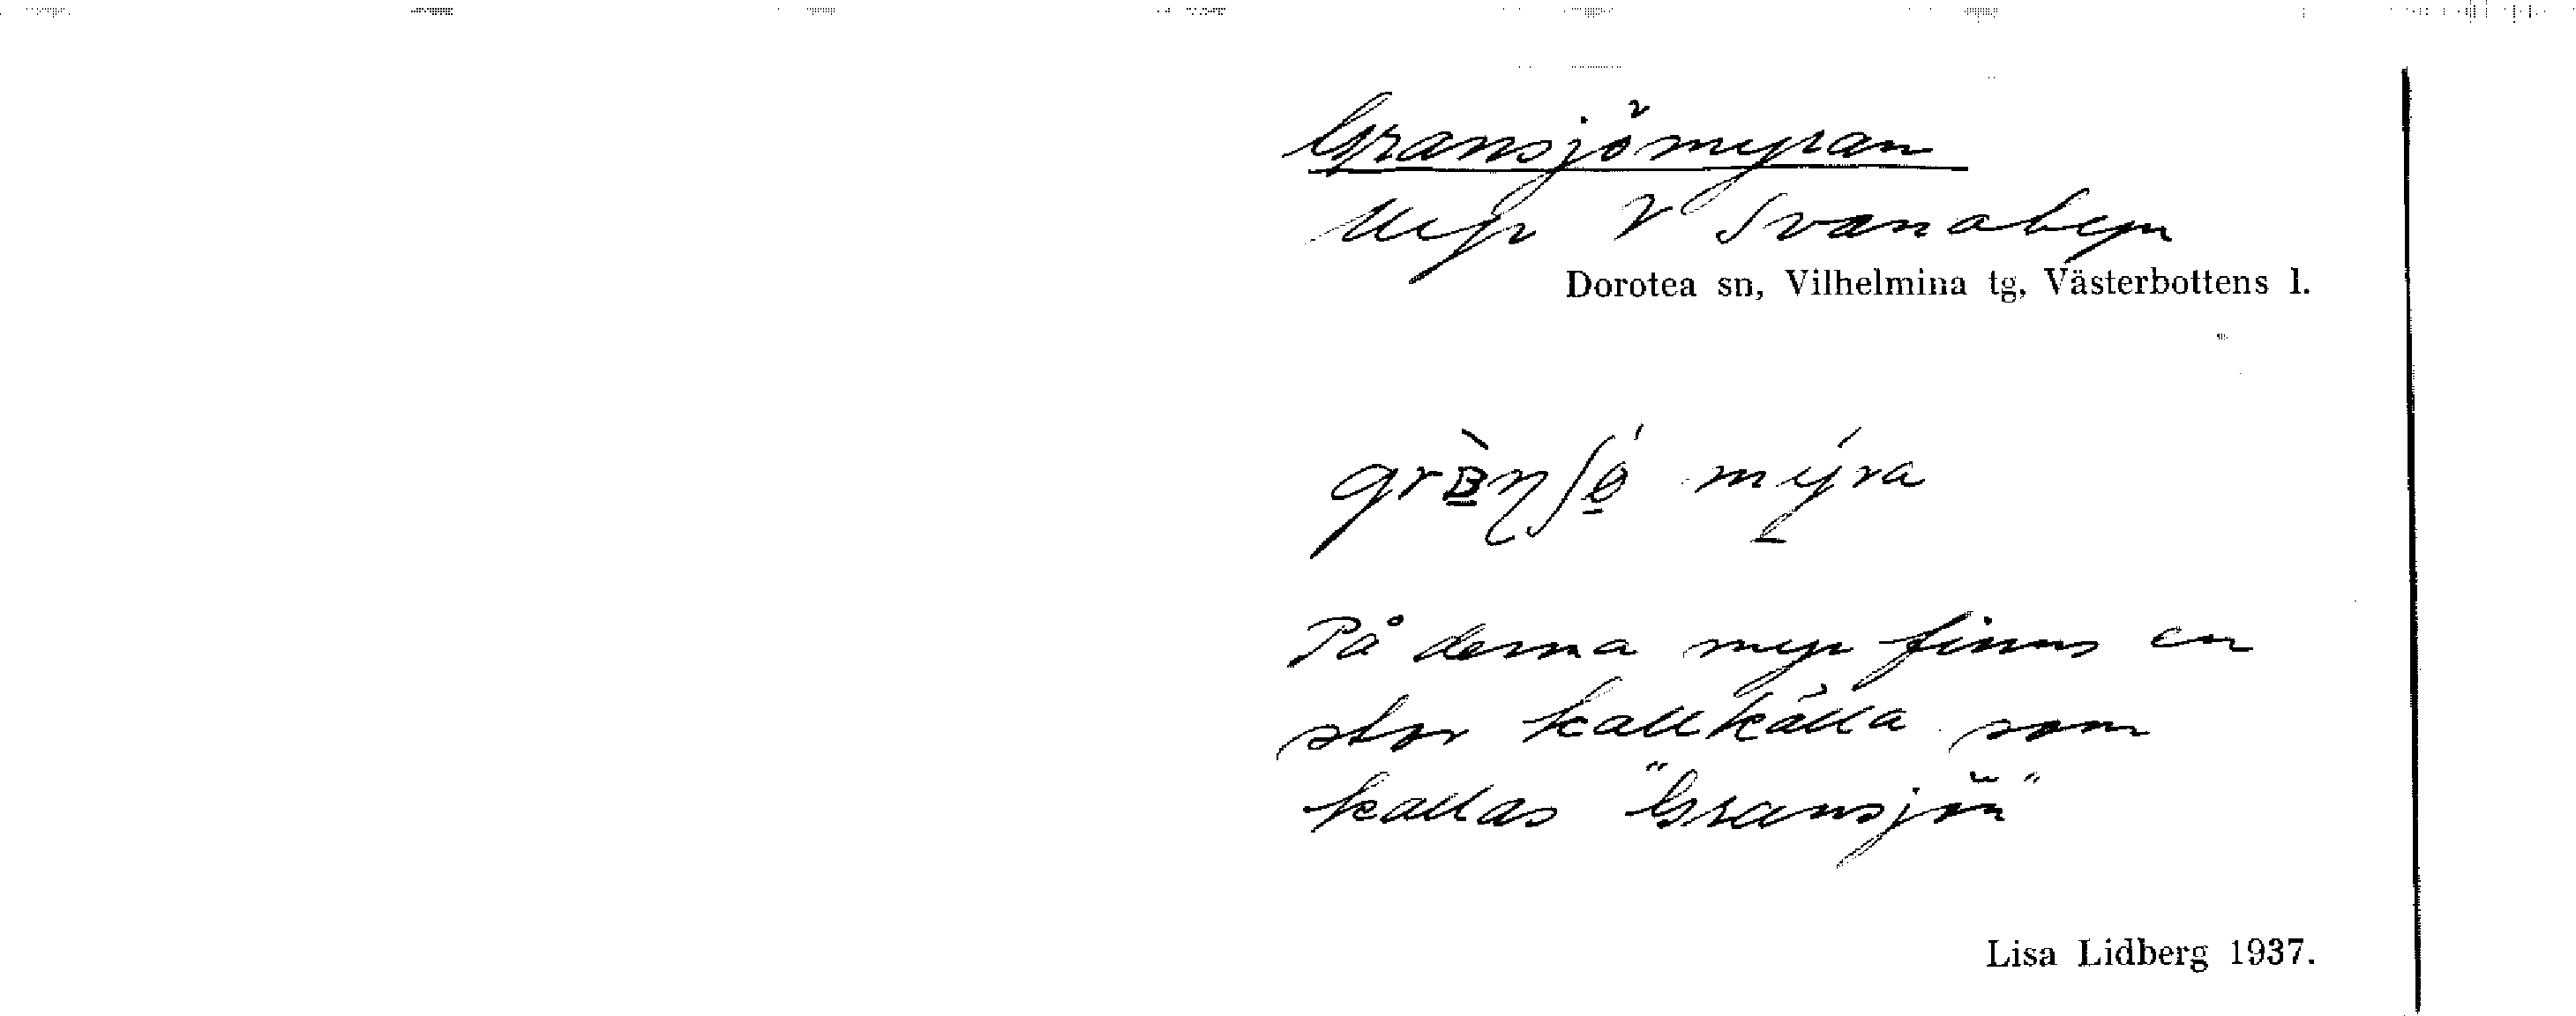 Gransjömyran
Myr V Svanabyn
Dorotea sn, Vilhelmina tg, Västerbottens l.
mýra
På denna myr finns en
stor kallkälla som
kallas "Gransjön"
Lisa Lidberg 1937.